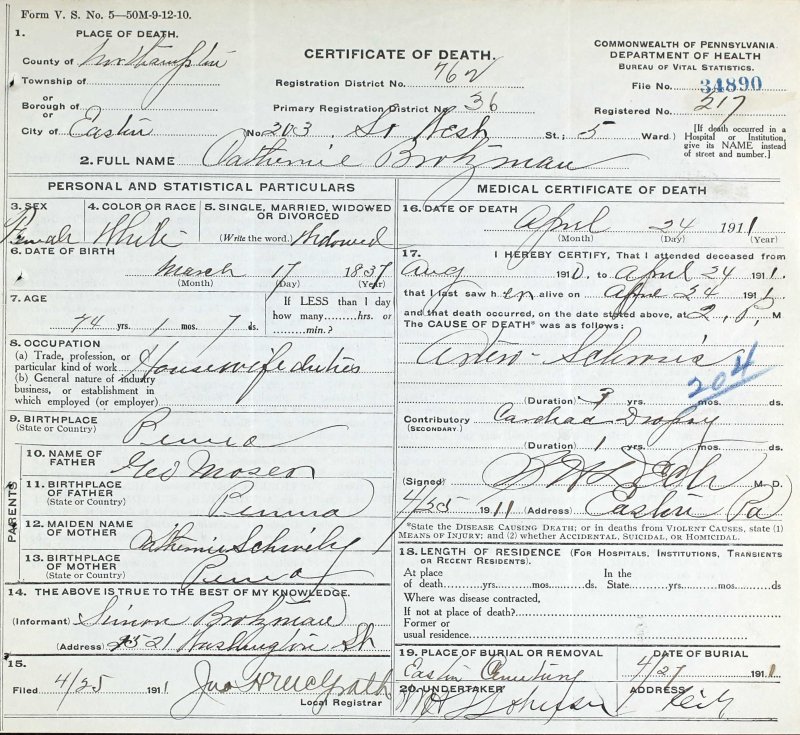 Form V. S. No. 5—50M-9-12-10.
1. PLACE OF DEATH.
County of Northampton
Township of
or
Borough of
or
City of Easton
CERTIFICATE OF DEATH.
Registration District No. 762
Primary Registration District No. 36
No. 203 So West St.; 5 Ward.)
COMMONWEALTH OF PENNSYLVANIA
DEPARTMENT OF HEALTH
BUREAU OF VITAL STATISTICS.
File No. 34890
Registered No. 217
[If death occurred in a
Hospital or Institution,
give its NAME instead
of street and number.]
2. FULL NAME Catherine Brotzman
PERSONAL AND STATISTICAL PARTICULARS
3. SEX
Female
4. COLOR OR RACE
White
5. SINGLE, MARRIED, WIDOWED
OR DIVORCED
(Write the word.) Widowed
6. DATE OF BIRTH
March 17 1837
(Month) (Day) (Year)
7. AGE
74 yrs. 1 mos. 7 ds.
If LESS than 1 day
how many hrs. or
min.?
8. OCCUPATION
(a) Trade, profession, or
particular kind of work Housewife duties
(b) General nature of industry
business, or establishment in
which employed (or employer)
9. BIRTHPLACE
(State or Country) Penna
PARENTS
10. NAME OF
FATHER Geo Moser
11. BIRTHPLACE
OF FATHER
(State or Country) Penna
12. MAIDEN NAME
OF MOTHER Catherine
13. BIRTHPLACE
OF MOTHER
(State or Country) Penna
14. THE ABOVE IS TRUE TO THE BEST OF MY KNOWLEDGE.
(Informant) Simon Brotzman
(Address) 1521 Washington St
15.
Filed 4/25 1911 Jno H McGrath
Local Registrar
MEDICAL CERTIFICATE OF DEATH
16. DATE OF DEATH
April 24 1911
(Month) (Day) (Year)
17. I HEREBY CERTIFY, That I attended deceased from
Aug 1910, to April 24 1911.
that I last saw her alive on April 24 1911
and that death occurred, on the date stated above, at 2 P. M
The CAUSE OF DEATH* was as follows:
Arterio-Sclerosis
204
(Duration) 3 yrs. mos. ds.
Contributory Cardiac Dropsy
(SECONDARY.)
(Duration) 1 yrs. mos. ds.
(Signed) M. D.
4/25 1911 (Address) Easton Pa
*State the DISEASE CAUSING DEATH; or in deaths from VIOLENT CAUSES, state (1)
MEANS OF INJURY; and (2) whether ACCIDENTAL, SUICIDAL, OR HOMICIDAL.
18. LENGTH OF RESIDENCE (FOR HOSPITALS, INSTITUTIONS, TRANSIENTS
OR RECENT RESIDENTS).
At place In the
of death yrs. mos. ds. State yrs. mos. ds.
Where was disease contracted,
If not at place of death?
Former or
usual residence
19. PLACE OF BURIAL OR REMOVAL
Easton Cemetery
DATE OF BURIAL
4/27 1911
20. UNDERTAKER
ADDRESS
City